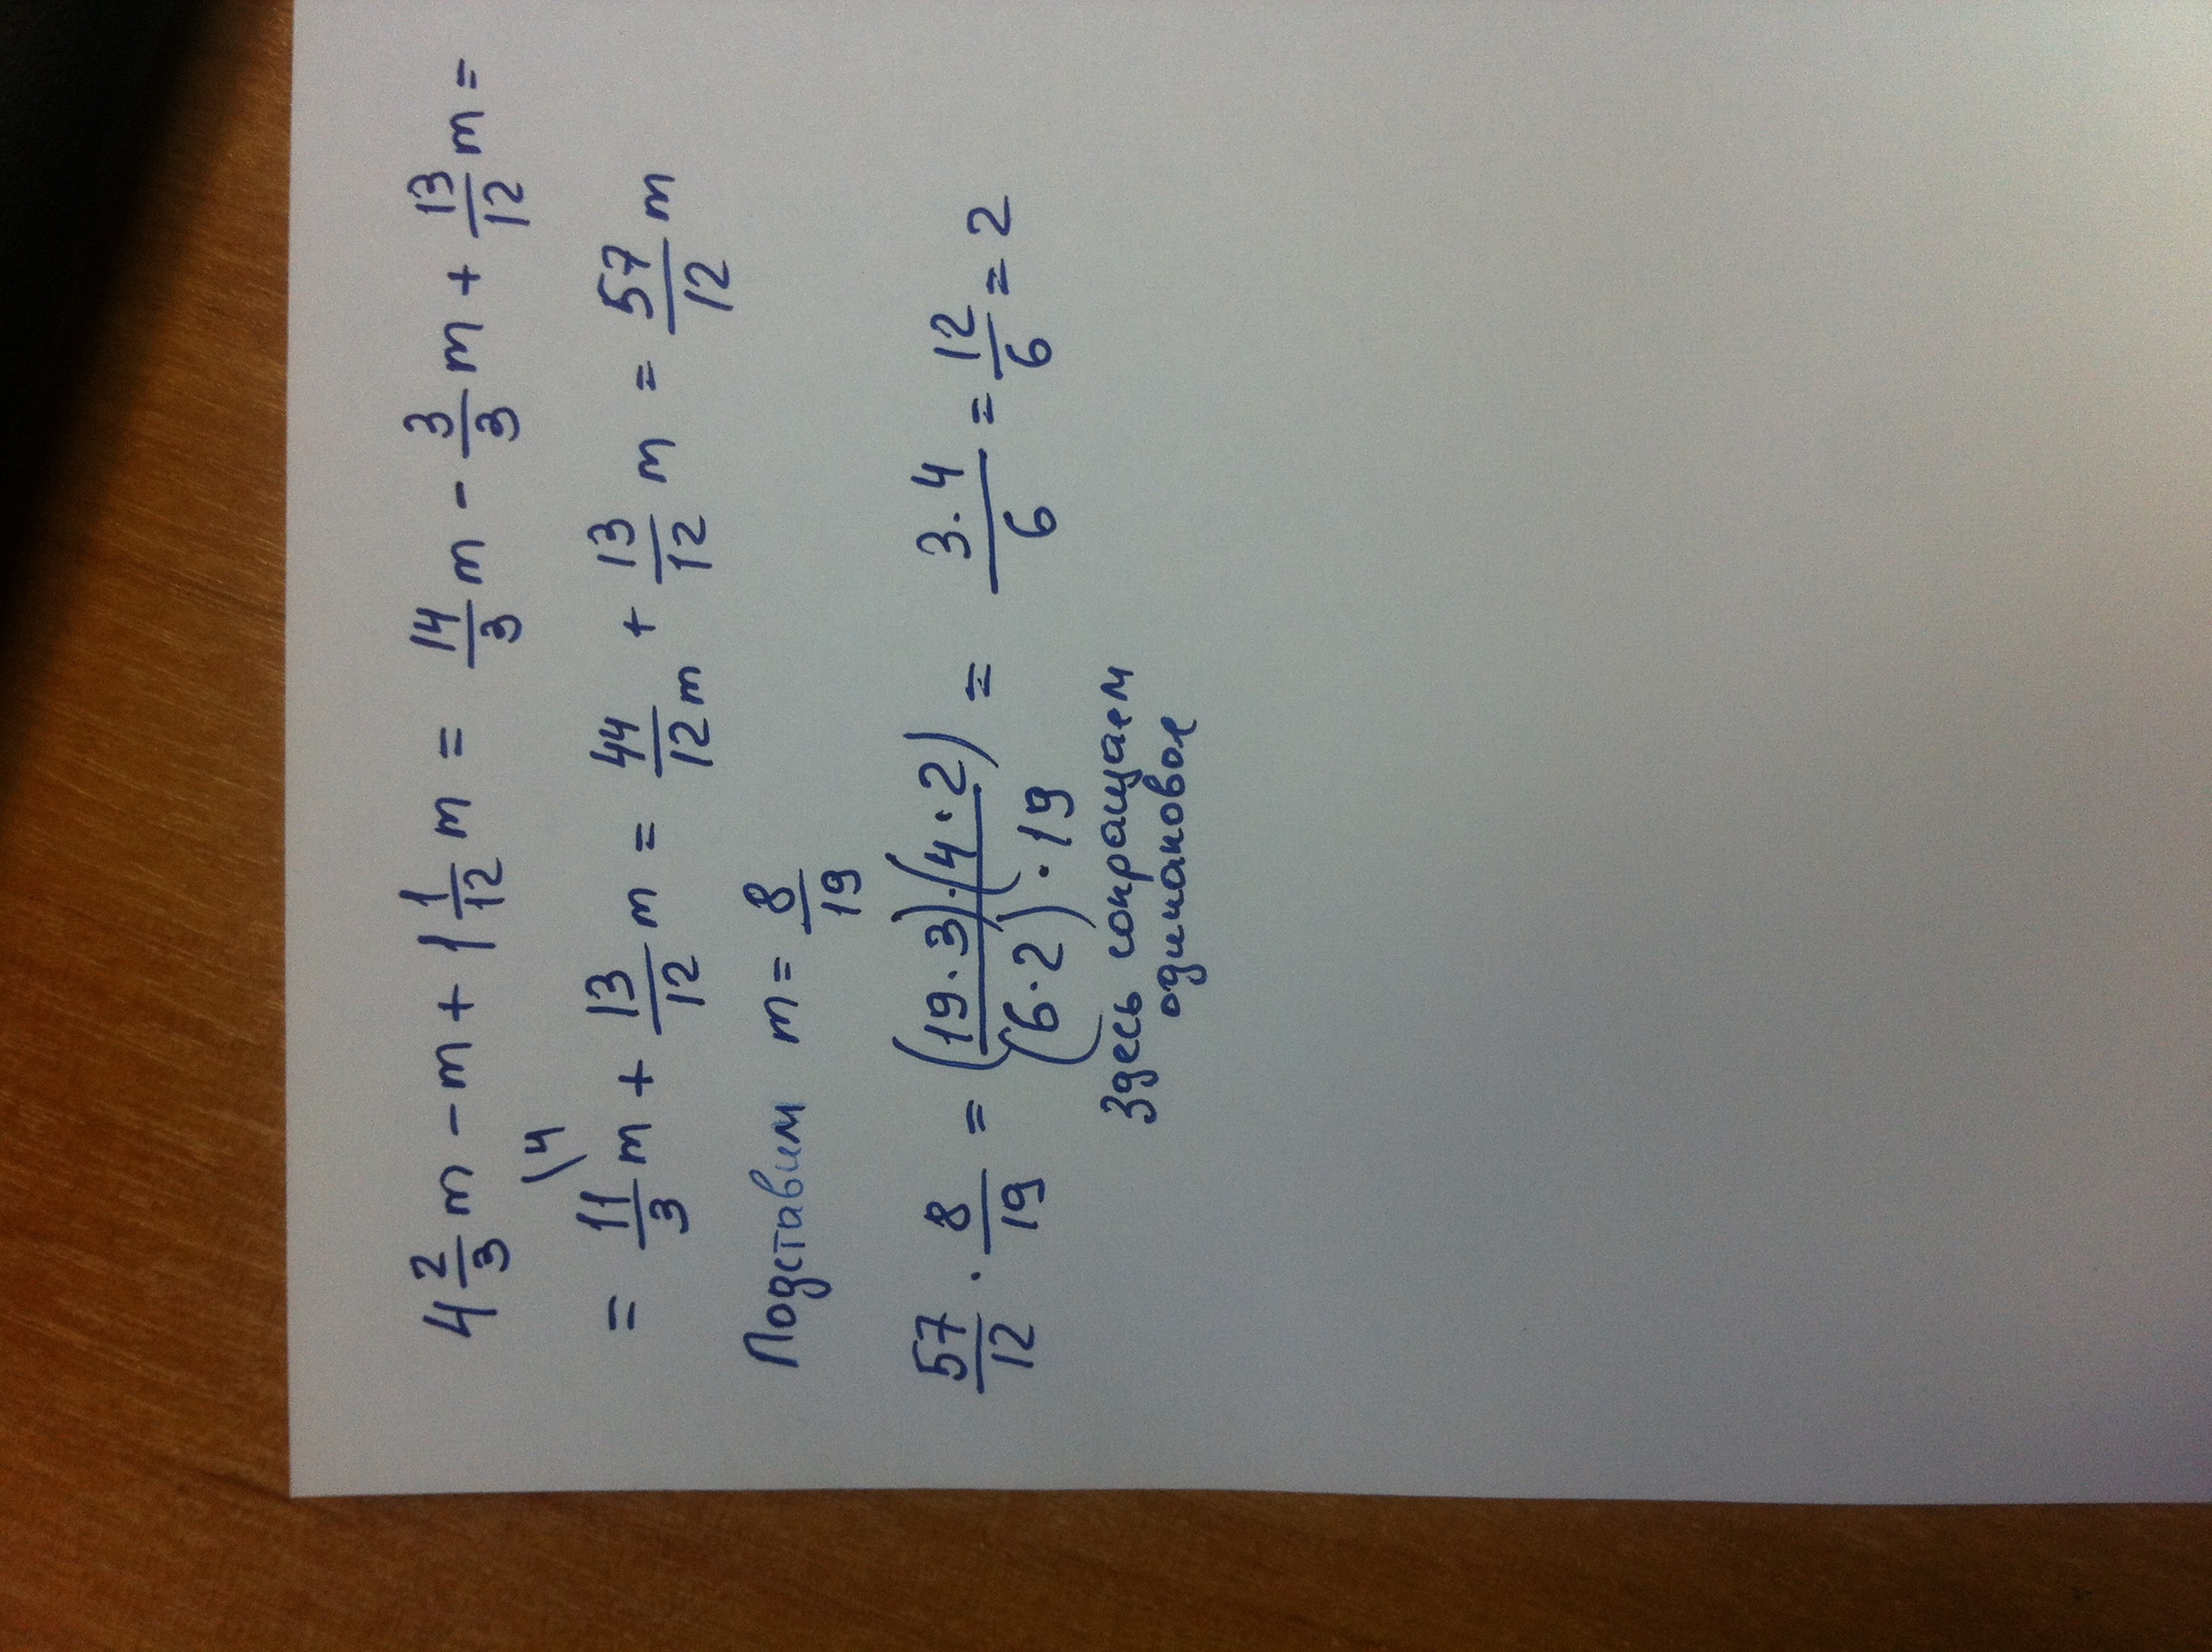 4 2/3 m - m + 1 1/12 m = 14/3 m - 3/3 m + 13/12 m =
= 11/3 \4 m + 13/12 m = 44/12 m + 13/12 m = 57/12 m
Подставим m = 8/19
57/12 · 8/19 = (19·3)·(4·2)/(6·2)·19 = 3·4/6 = 12/6 = 2
Здесь сокращаем
одинаковое